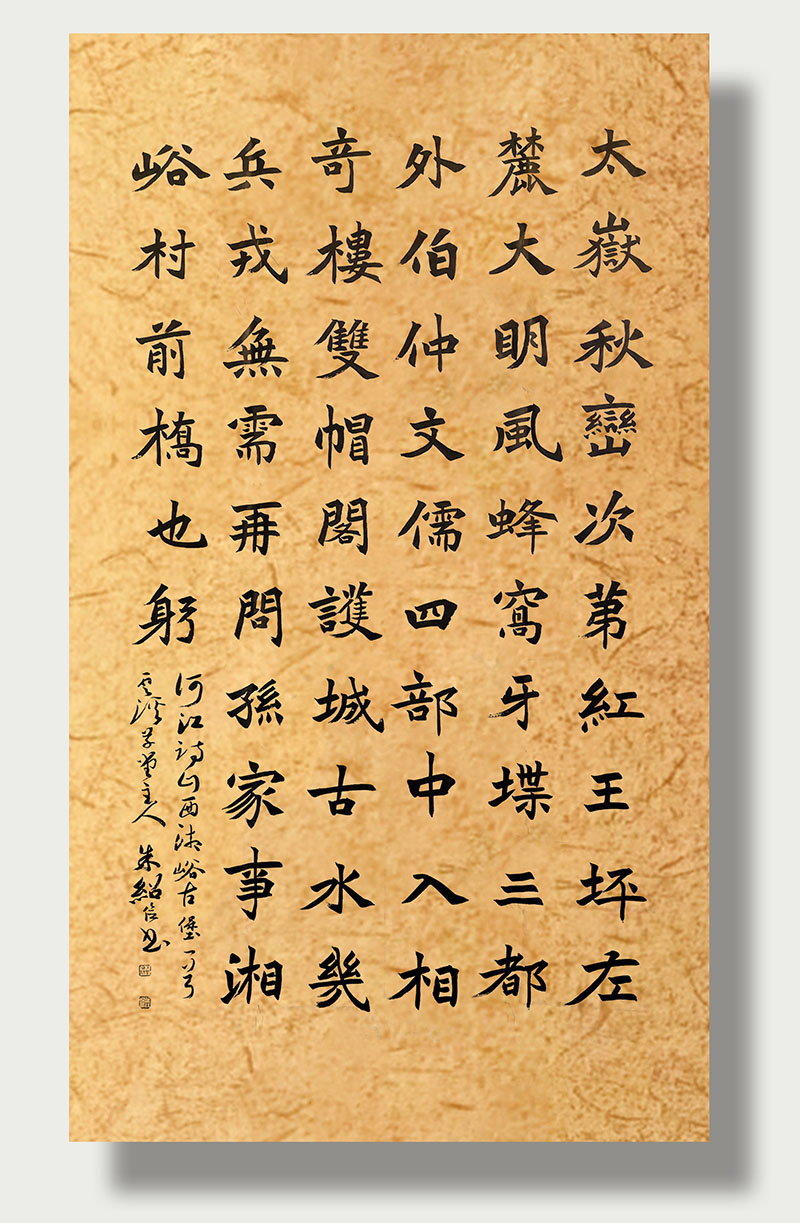 太嶽秋巒次苐紅王坪左
麓大明風蜂窩牙堞三都
外伯仲文儒四部中入相
奇樓雙帽閣護城古水幾
兵戎無需再問孫家事湘
峪村前橋也躬
江詩山西湘峪古堡一首
草堂主人朱紹信書